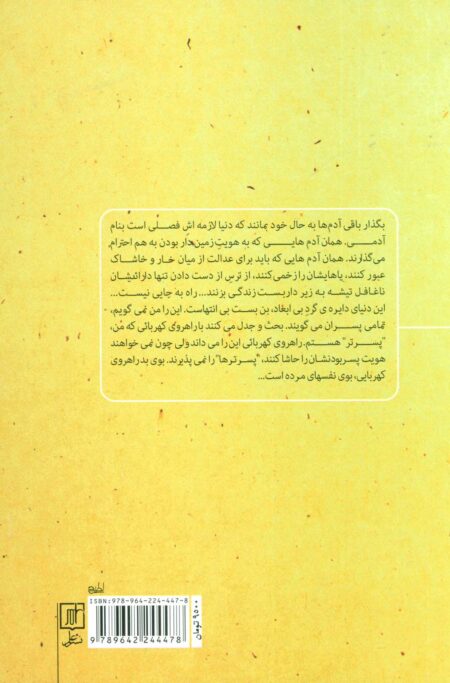 بگذار باقی آدم‌ها به حال خود بمانند که دنیا لازمه اش فصلی است بنام
آدمـی. همان آدم هایـی که به هویتِ زمین‌دار بودن به هم احترام
می‌گذارند. همان آدم هایی که باید برای عدالت از میان خار و خاشاک
عبور کنند، پاهایشان را زخمی کنند، از ترسِ از دست دادنِ تنها دارائیشان
ناغافل تیشه به زیر داربست زندگی بزنند... راه به جایی نیست...
این دنیای دایره ی گردِ بی ابعاد، بن بست بی انتهاست. این را من نمی گویم،
تمامی پسران می گویند. بحث و جدل می کنند با راهروی کهربائی که من،
"پسرتر" هستم. راهروی کهربائی این را می داند ولی چون نمی خواهند
هویت پسر بودنشان را حاشا کنند، "پسرترها" را نمی پذیرند. بوی بد راهروی
کهربایی، بوی نفسهای مرده است...
ISBN: 978-964-224-447-8
9 789642 244478
۹۵۰۰ تومان
نشر علم